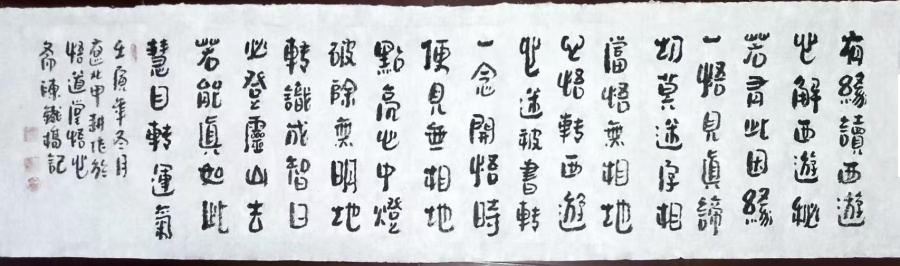 有緣讀西遊
心解西遊秘
若有此因緣
一悟見真諦
切莫迷字相
當悟無相地
心悟轉西遊
心迷被書轉
一念開悟時
便見無相地
點亮心中燈
破除無明地
轉識成智日
必登靈山去
若能真如此
慧目轉運氣
壬寅年冬月
作於
悟道堂悟心
齋陳鐵橋記